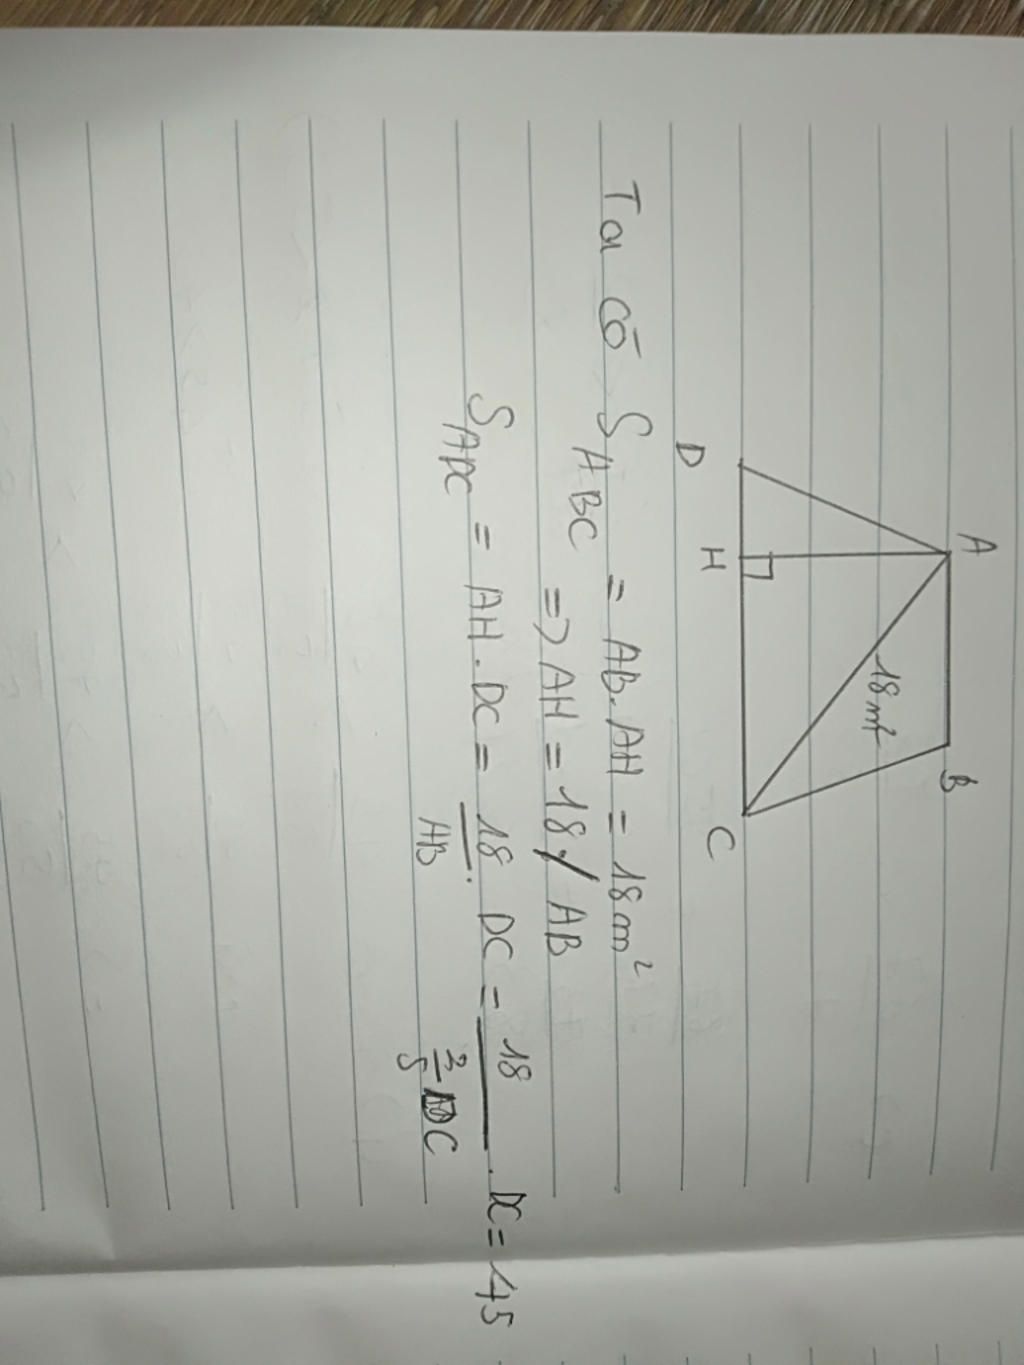 A B
18m²
D H C
Ta có S_ABC = AB.AH = 18m²
=> AH = 18 / AB
S_ADC = AH.DC = 18/AB . DC = 18/(2/5 DC) . DC = 45